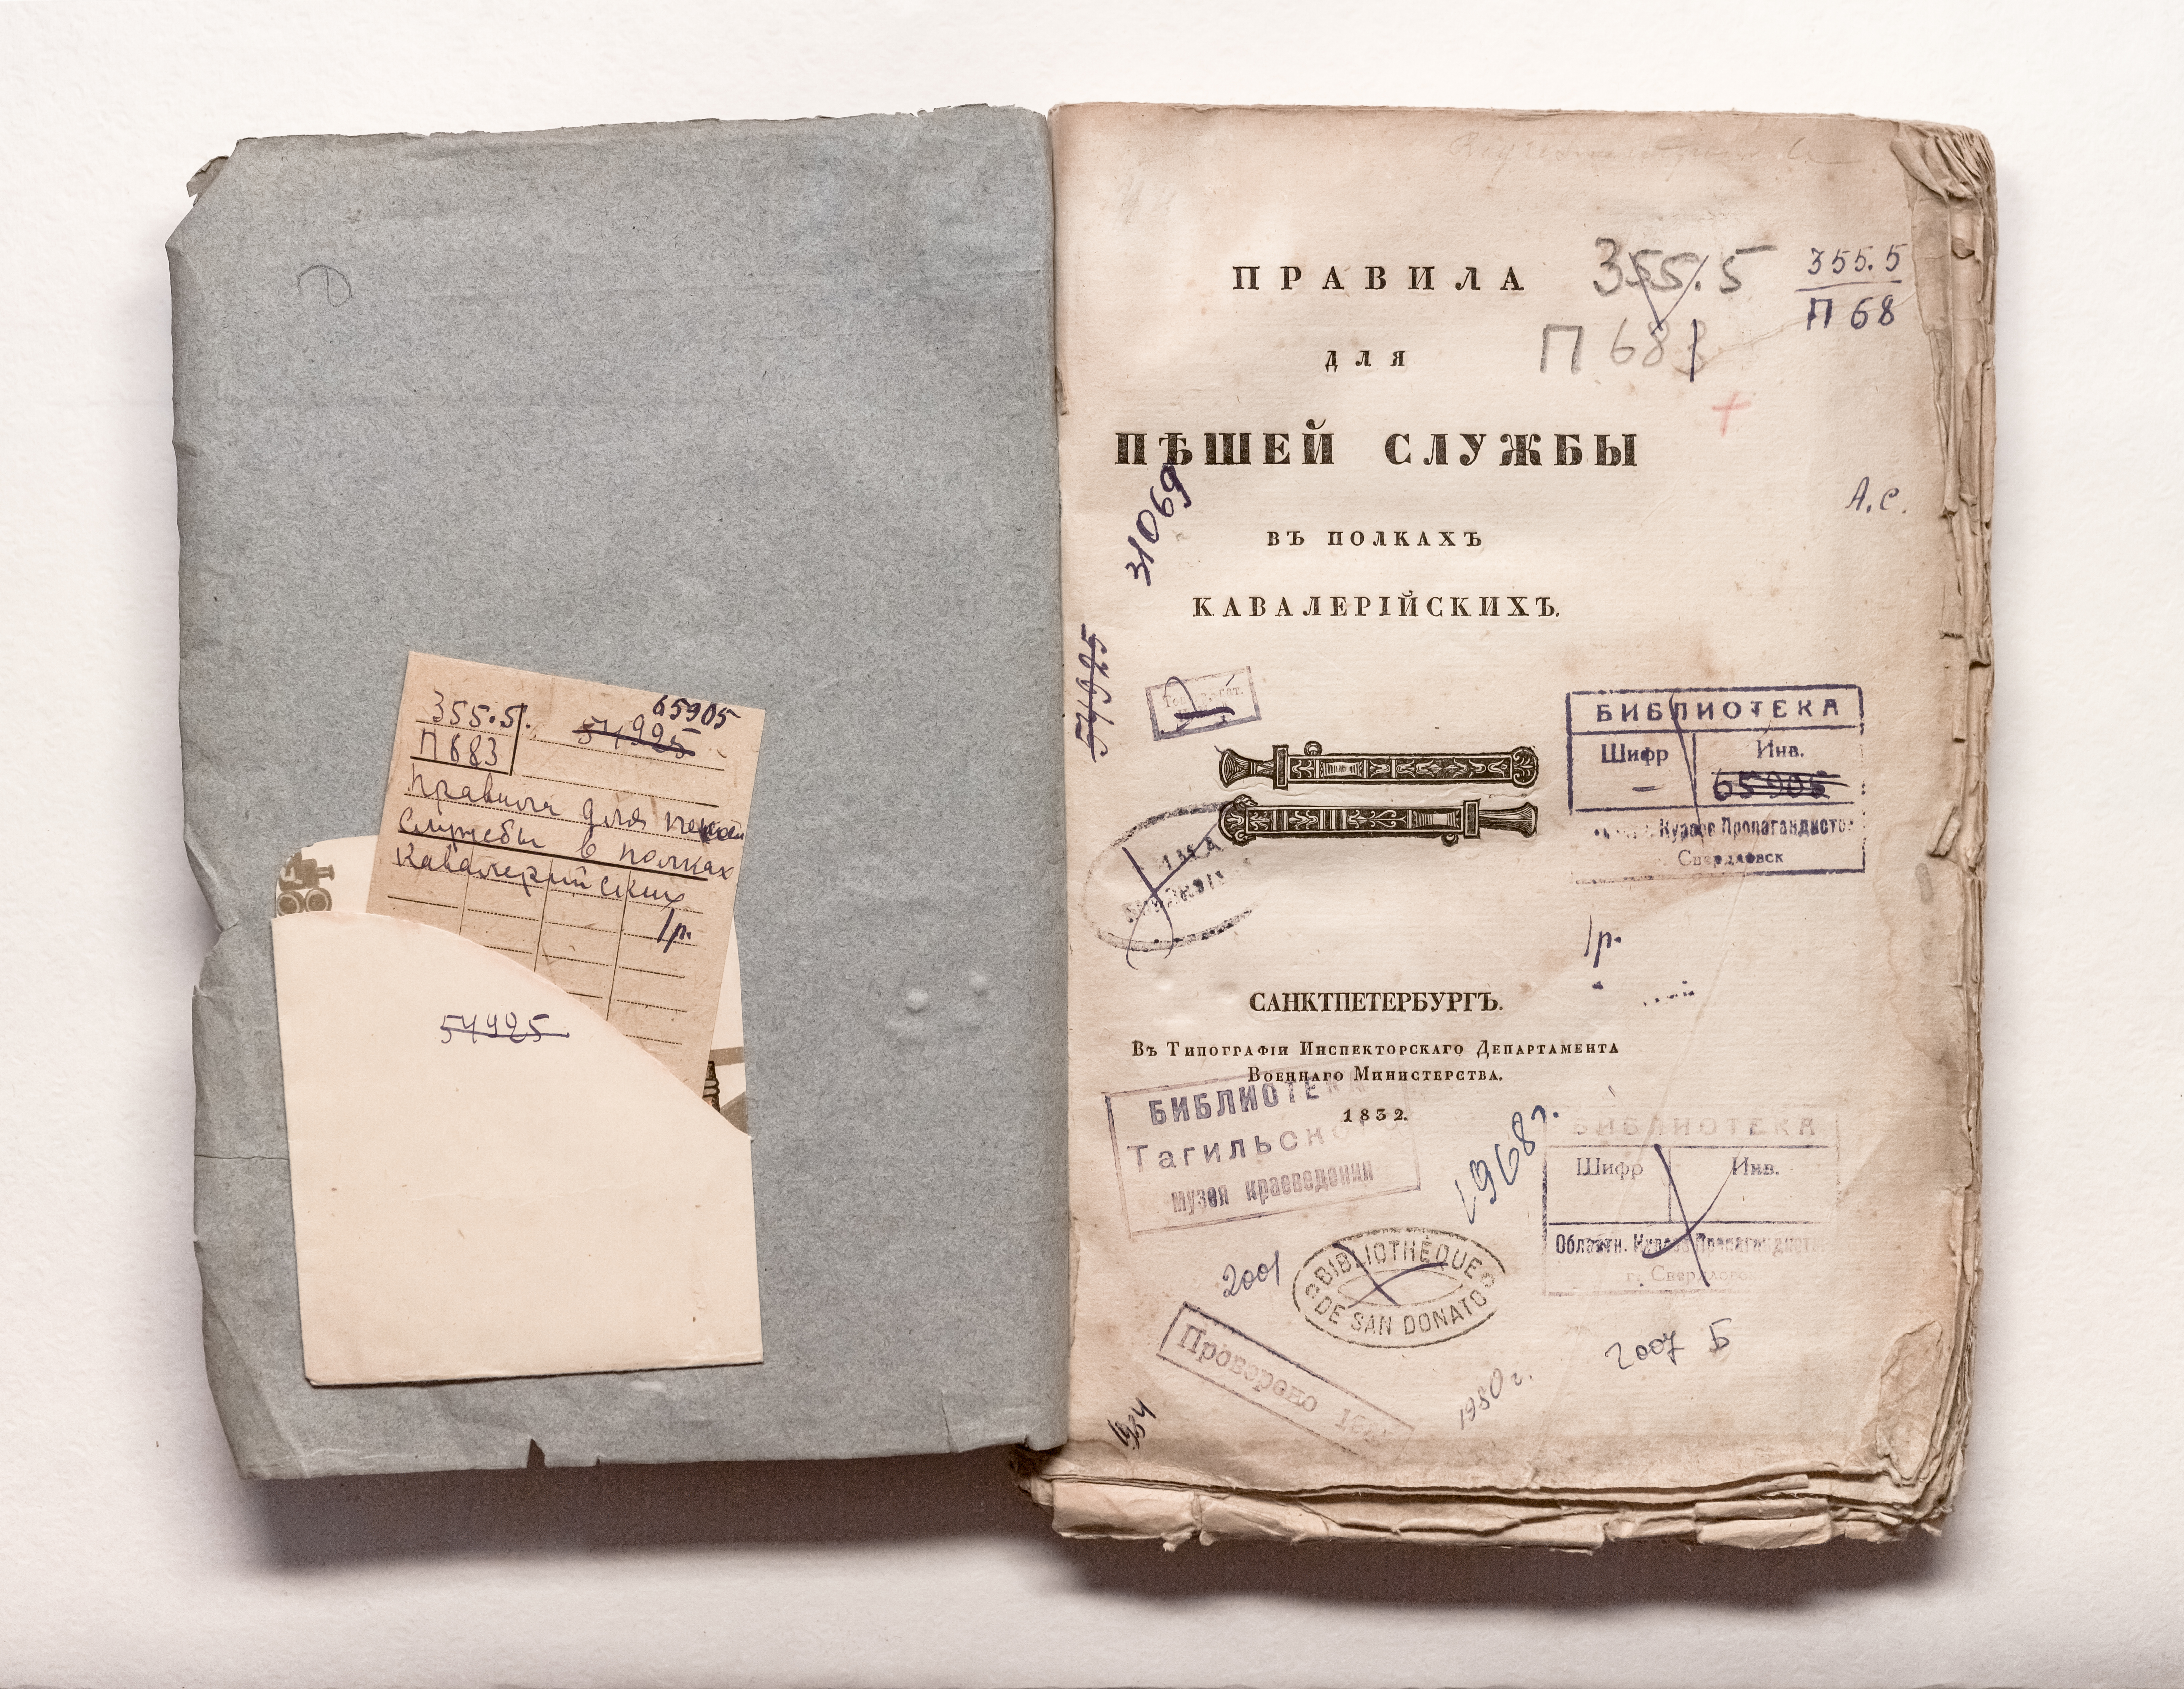 355.5.
65905
54925
П683
Правила для пешей
службы в полках
кавалерийских
1р.
54925
ПРАВИЛА
355.5
355.5
П 68
ДЛЯ
П 683
ПѢШЕЙ СЛУЖБЫ
А.С.
31069
ВЪ ПОЛКАХЪ
КАВАЛЕРІЙСКИХЪ.
54925
БИБЛИОТЕКА
Шифр Инв.
— 65905
Курсов Пропагандистов
Свердловск
1р.
САНКТПЕТЕРБУРГЪ.
Въ Типографіи Инспекторскаго Департамента
Военнаго Министерства.
1832.
БИБЛИОТЕКА
Тагильского
музея краеведения
1968г.
БИБЛИОТЕКА
Шифр Инв.
Областн. Курсов Пропагандистов
г. Свердловск
BIBLIOTHÈQUE
DE SAN DONATO
2001
Проверено
2007 Б
1980 г.
1934